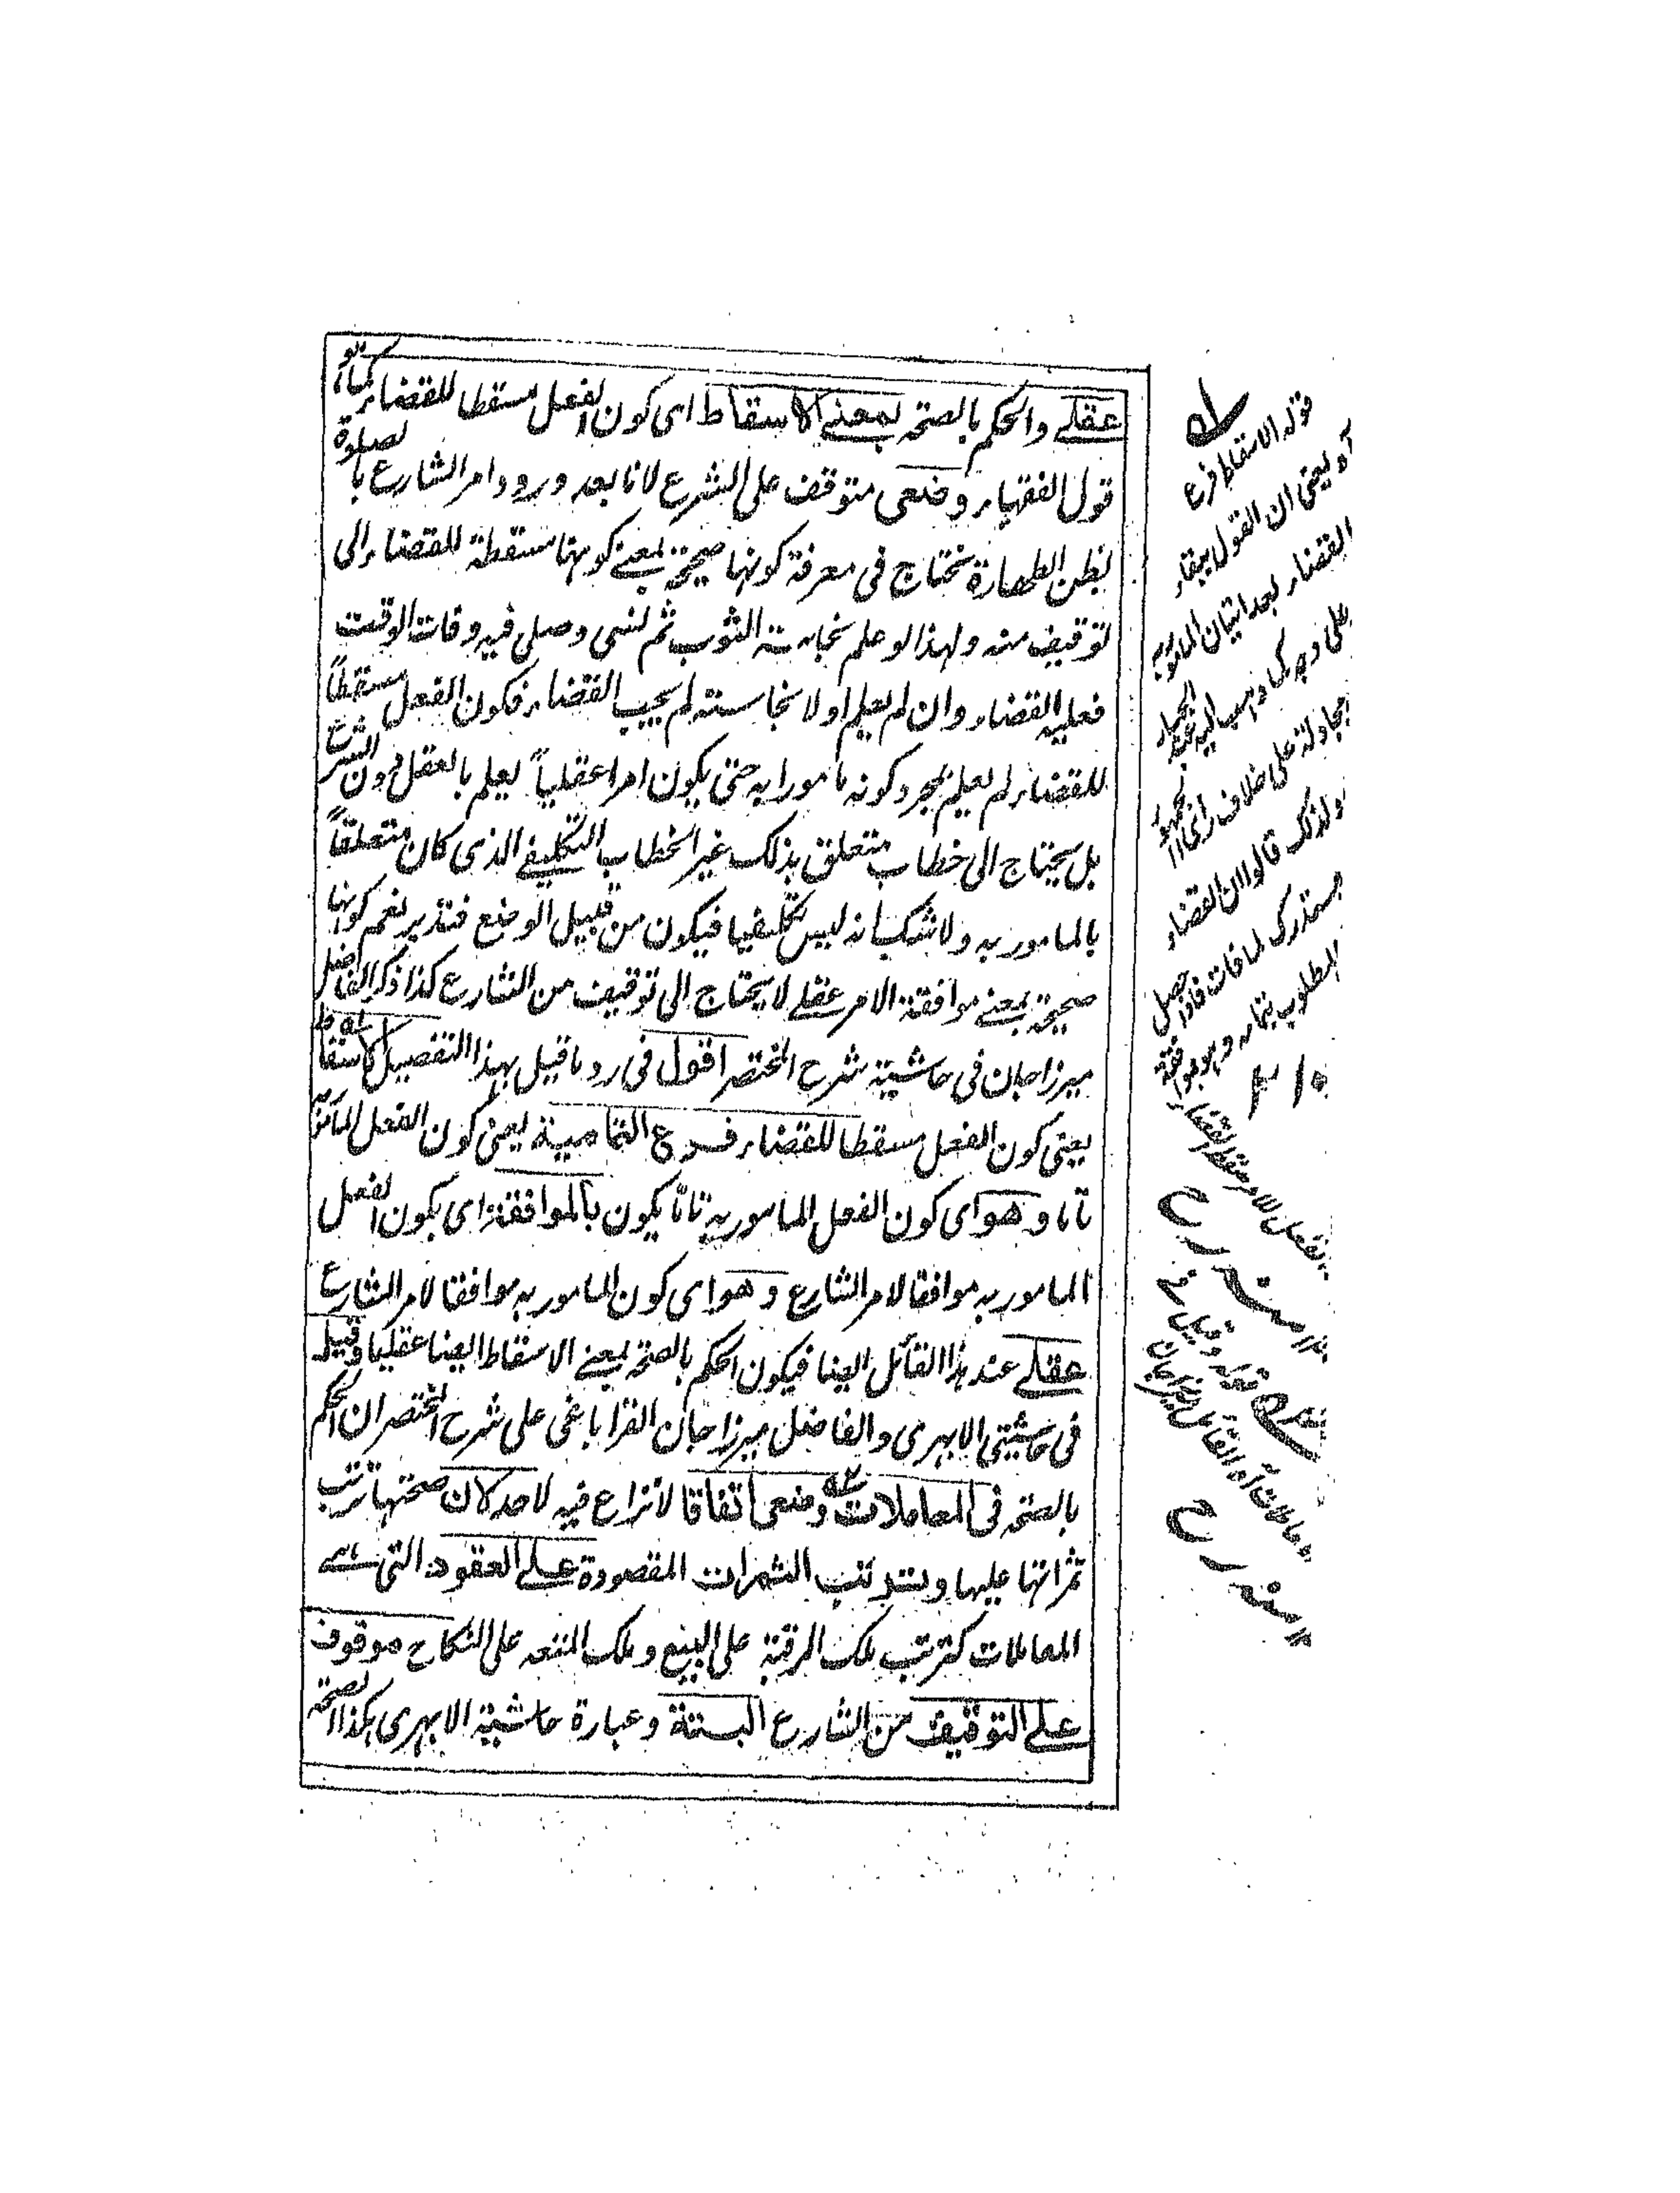 عقلي والحكم بالصحة بمعنى الاسقاط اى كون الفعل مسقطا للقضاء كما هو
قول الفقهاء وضعى متوقف على الشرع لانا بعد ورود امر الشارع بالصلوة
بظن الطهارة نحتاج فى معرفة كونها صحيحة بمعنى كونها مسقطة للقضاء الى
توقيف منه ولهذا لو علم نجاسة الثوب ثم نسى وصلى فيه وفات الوقت
فعليه القضاء وان لم يعلم اولا نجاسته لم يجب القضاء فكون الفعل مسقطاً
للقضاء لم يعلم بمجرد كونه مامورا به حتى يكون امرا عقلياً يعلم بالعقل دون الشرع
بل يحتاج الى خطاب متعلق بذلك غير الخطاب التكليفي الذى كان متعلقاً
بالمامور به ولا شك انه ليس تكليفيا فيكون من قبيل الوضع فتدبر نعم كونها
صحيحة بمعنى موافقة الامر عقلي لا يحتاج الى توقيف من الشارع كذا ذكر الفاضل
ميرزاجان فى حاشية شرح المختصر اقول فى رد ما قيل بهذا التفصيل الاسقاط
يعنى كون الفعل مسقطا للقضاء فرع التمامية يعنى كون الفعل المامور به
تاما وهو اى كون الفعل المامور به تامّا يكون بالموافقة اى بكون الفعل
المامور به موافقا لامر الشارع وهو اى كون المامور به موافقا لامر الشارع
عقلي عند هذا القائل ايضا فيكون الحكم بالصحة بمعنى الاسقاط ايضا عقليا وقيل
فى حاشيتي الابهرى والفاضل ميرزاجان القراباغى على شرح المختصر ان الحكم
بالصحة فى المعاملات وضعى اتفاقا لا نزاع فيه لاحد لان صحتها ترتب
ثمراتها عليها وترتب الثمرات المقصودة على العقود التى هى
المعاملات كترتب ملك الرقبة على البيع وملك المتعة على النكاح موقوف
على التوقيف من الشارع البتة وعبارة حاشية الابهرى هكذا الصحة
قوله الاسقاط فرع
آه يعنى ان القول ببقاء
القضاء بعد اتيان المامور به
على وجه كما ذهب اليه عبد الجبار
مجادلة على خلاف راى الجمهور
ولذلك قالوا ان القضاء
مستدرك لما فات فاذا حصل
المطلوب بتمامه وهو موافقة
الفعل للامر سقط القضاء
١٢ منه رح
قوله وقيل فى
١٢ منه رح